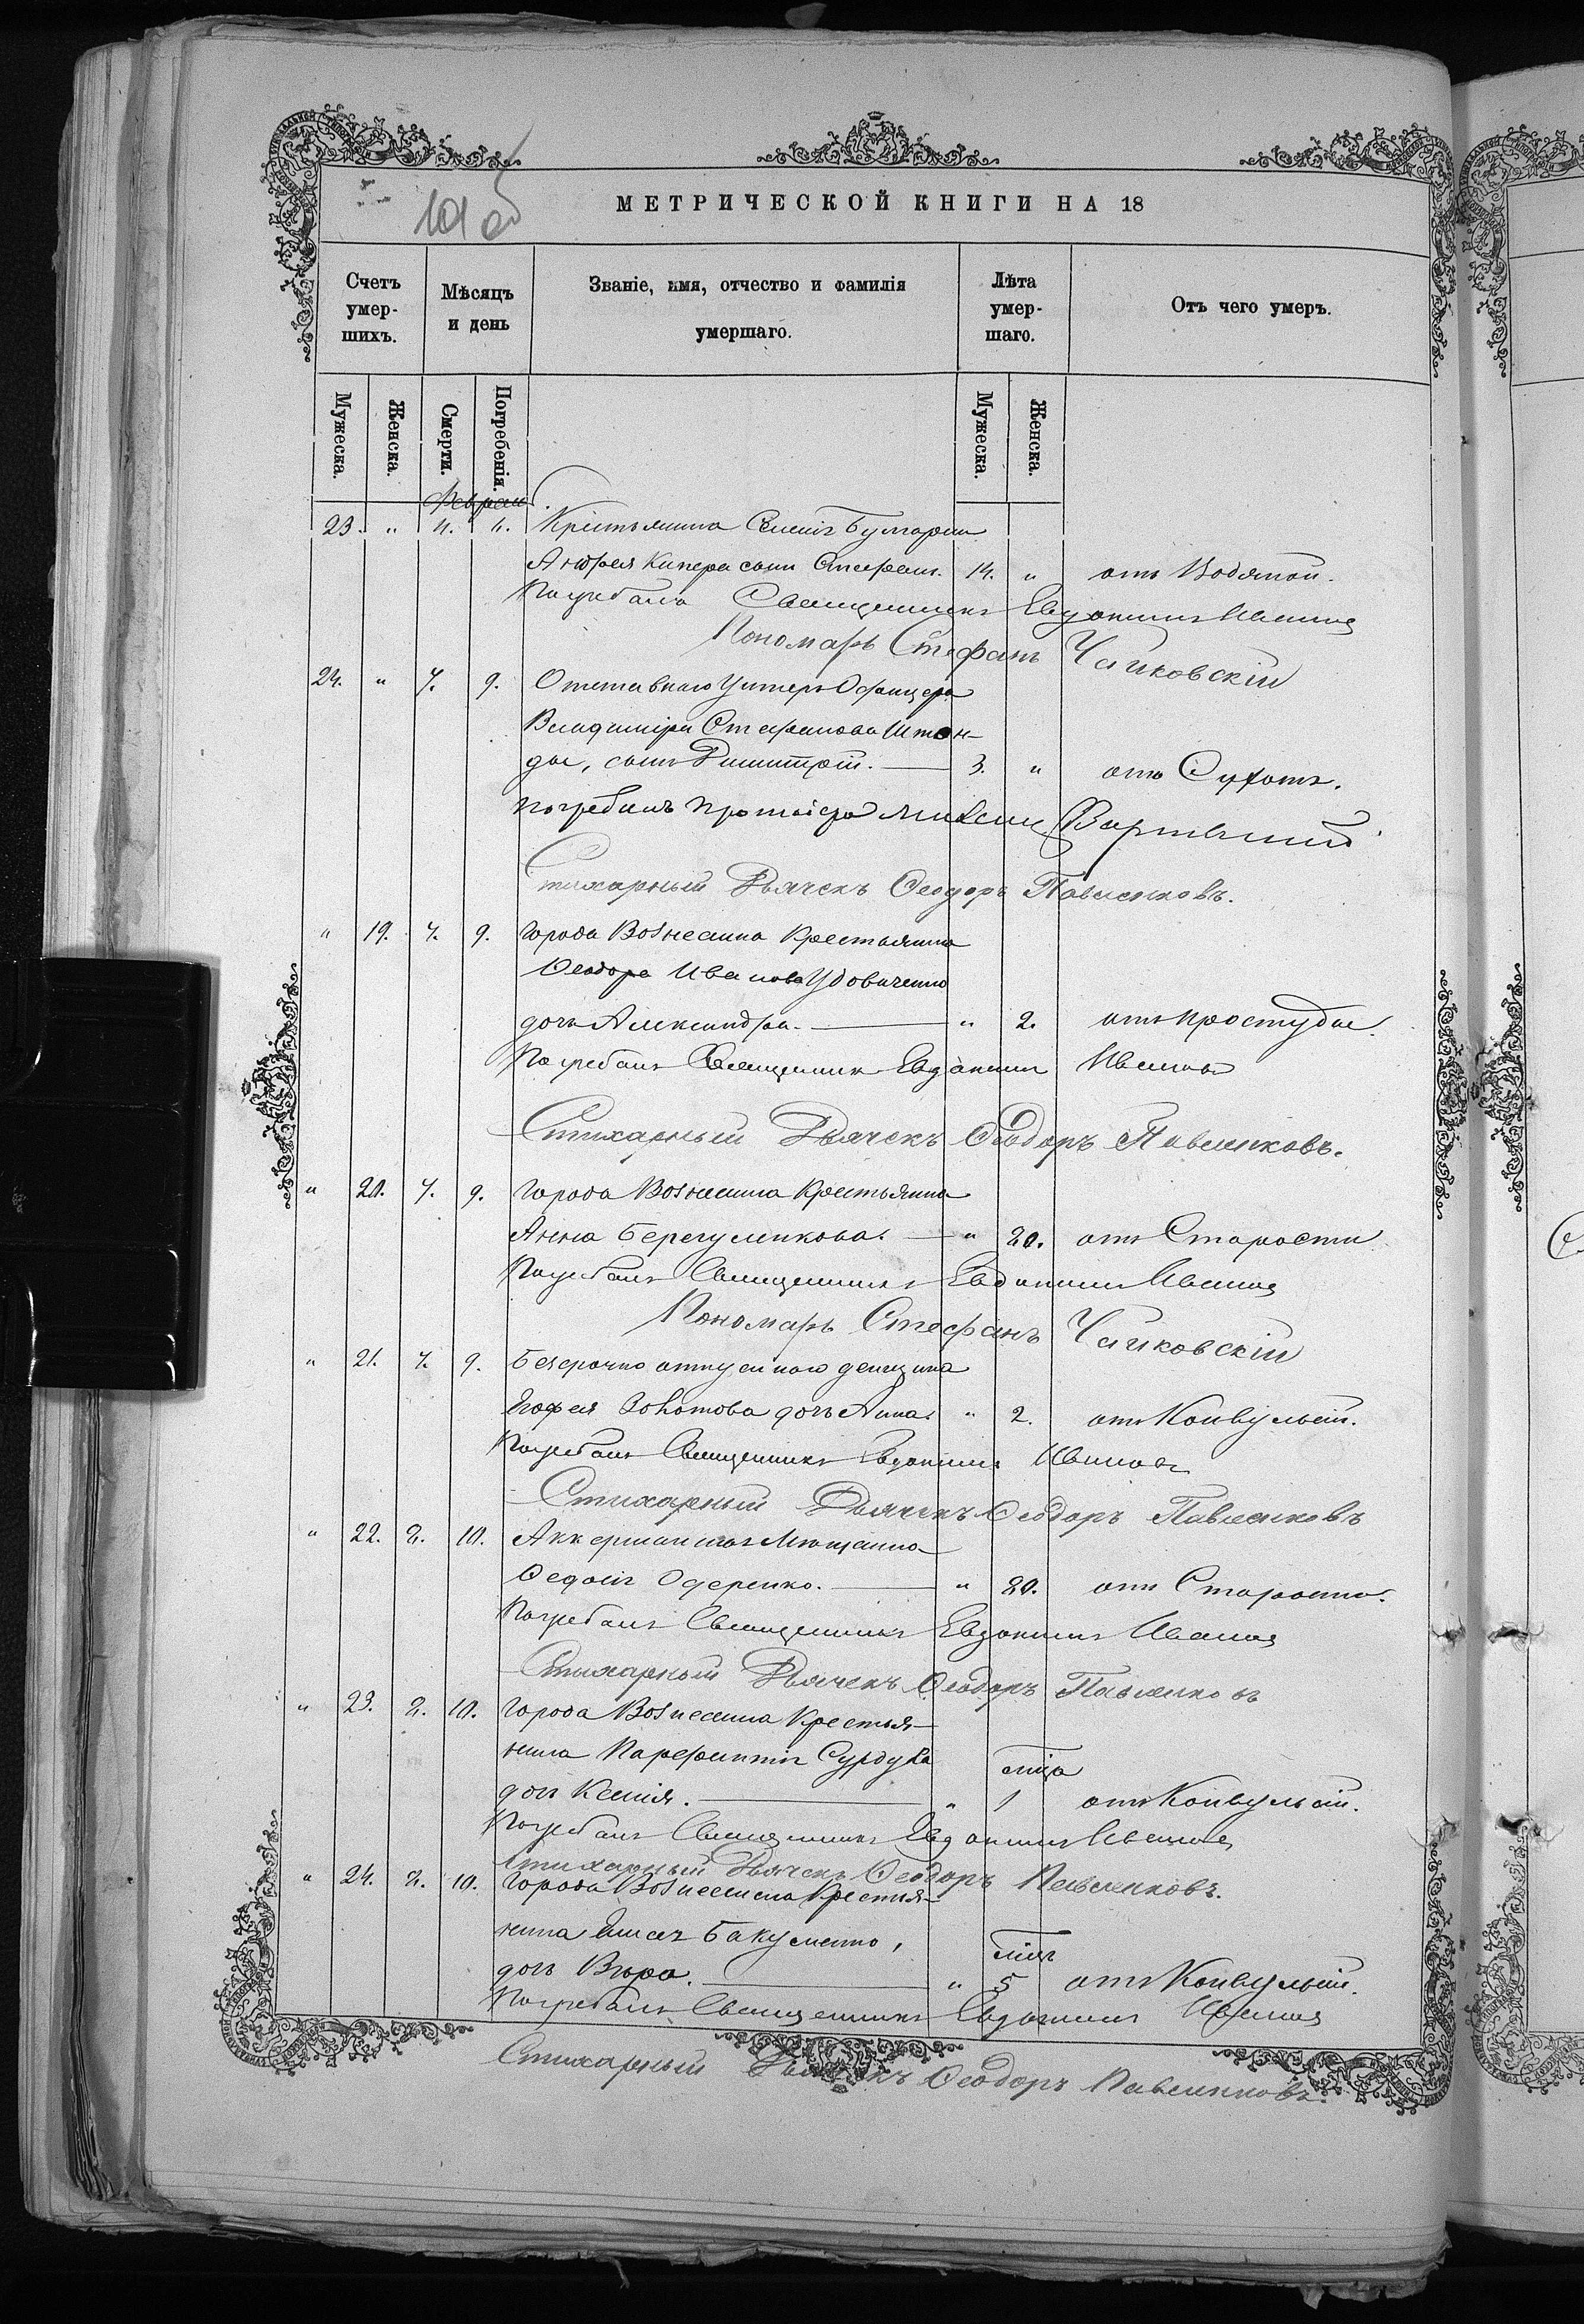 МЕТРИЧЕСКОЙ КНИГИ НА 18
Счетъ умершихъ.
Мѣсяцъ и день
Званіе, имя, отчество и фамилія умершаго.
Лѣта умершаго.
Отъ чего умеръ.
Мужеска.
Женска.
Смерти.
Погребенія.
Мужеска.
Женска.
23. " 4. 6.
Андрея Кипера сынъ Стефанъ. 14. " отъ Водяной.
Погребалъ Священникъ Евдокимъ Ивановъ
Пономарь Стефанъ Чайковскій
24. " 7. 9. Отставнаго Унтеръ Офицера
Владиміра Стефанова Штон-
ды, сынъ Димитрій. 3. " отъ Сухотъ.
погребалъ протоіерей
Стихарный Дьячекъ Феодоръ Павленковъ.
" 19. 7. 9. Города Вознесенска Крестьянина
Феодора Иванова Удовиченко
дочь Александра. " 2. отъ простуды.
Погребалъ Священникъ Евдокимъ Ивановъ
Стихарный Дьячекъ Феодоръ Павленковъ.
" 20. 7. 9. Города Вознесенска Крестьянка
Анна Берегуленкова. " 80. отъ Старости
Погребалъ Священникъ Евдокимъ Ивановъ
Пономарь Стефанъ Чайковскій
" 21. 7. 9. Безсрочно отпускнаго денщика
Золотова дочь Анна. " 2. отъ Конвульсій.
Погребалъ Священникъ Евдокимъ Ивановъ
Стихарный Дьячекъ Феодоръ Павленковъ
" 22. 8. 10. Аккерманская Мѣщанка
Федосія Одеренко. " 80. отъ Старости.
Погребалъ Священникъ Евдокимъ Ивановъ
Стихарный Дьячекъ Феодоръ Павленковъ
" 23. 8. 10. Города Вознесенска Крестья-
нина Парфентія Сурдула
дочь Ксенія. " 1 отъ Конвульсій.
Погребалъ Священникъ Евдокимъ Ивановъ
Стихарный Дьячекъ Феодоръ Павленковъ.
" 24. 8. 10. Города Вознесенска Крестья-
нина Бакуменко,
дочь Вѣра. " 5 отъ Конвульсій.
Погребалъ Священникъ Евдокимъ Ивановъ
Стихарный Дьячекъ Феодоръ Павленковъ.